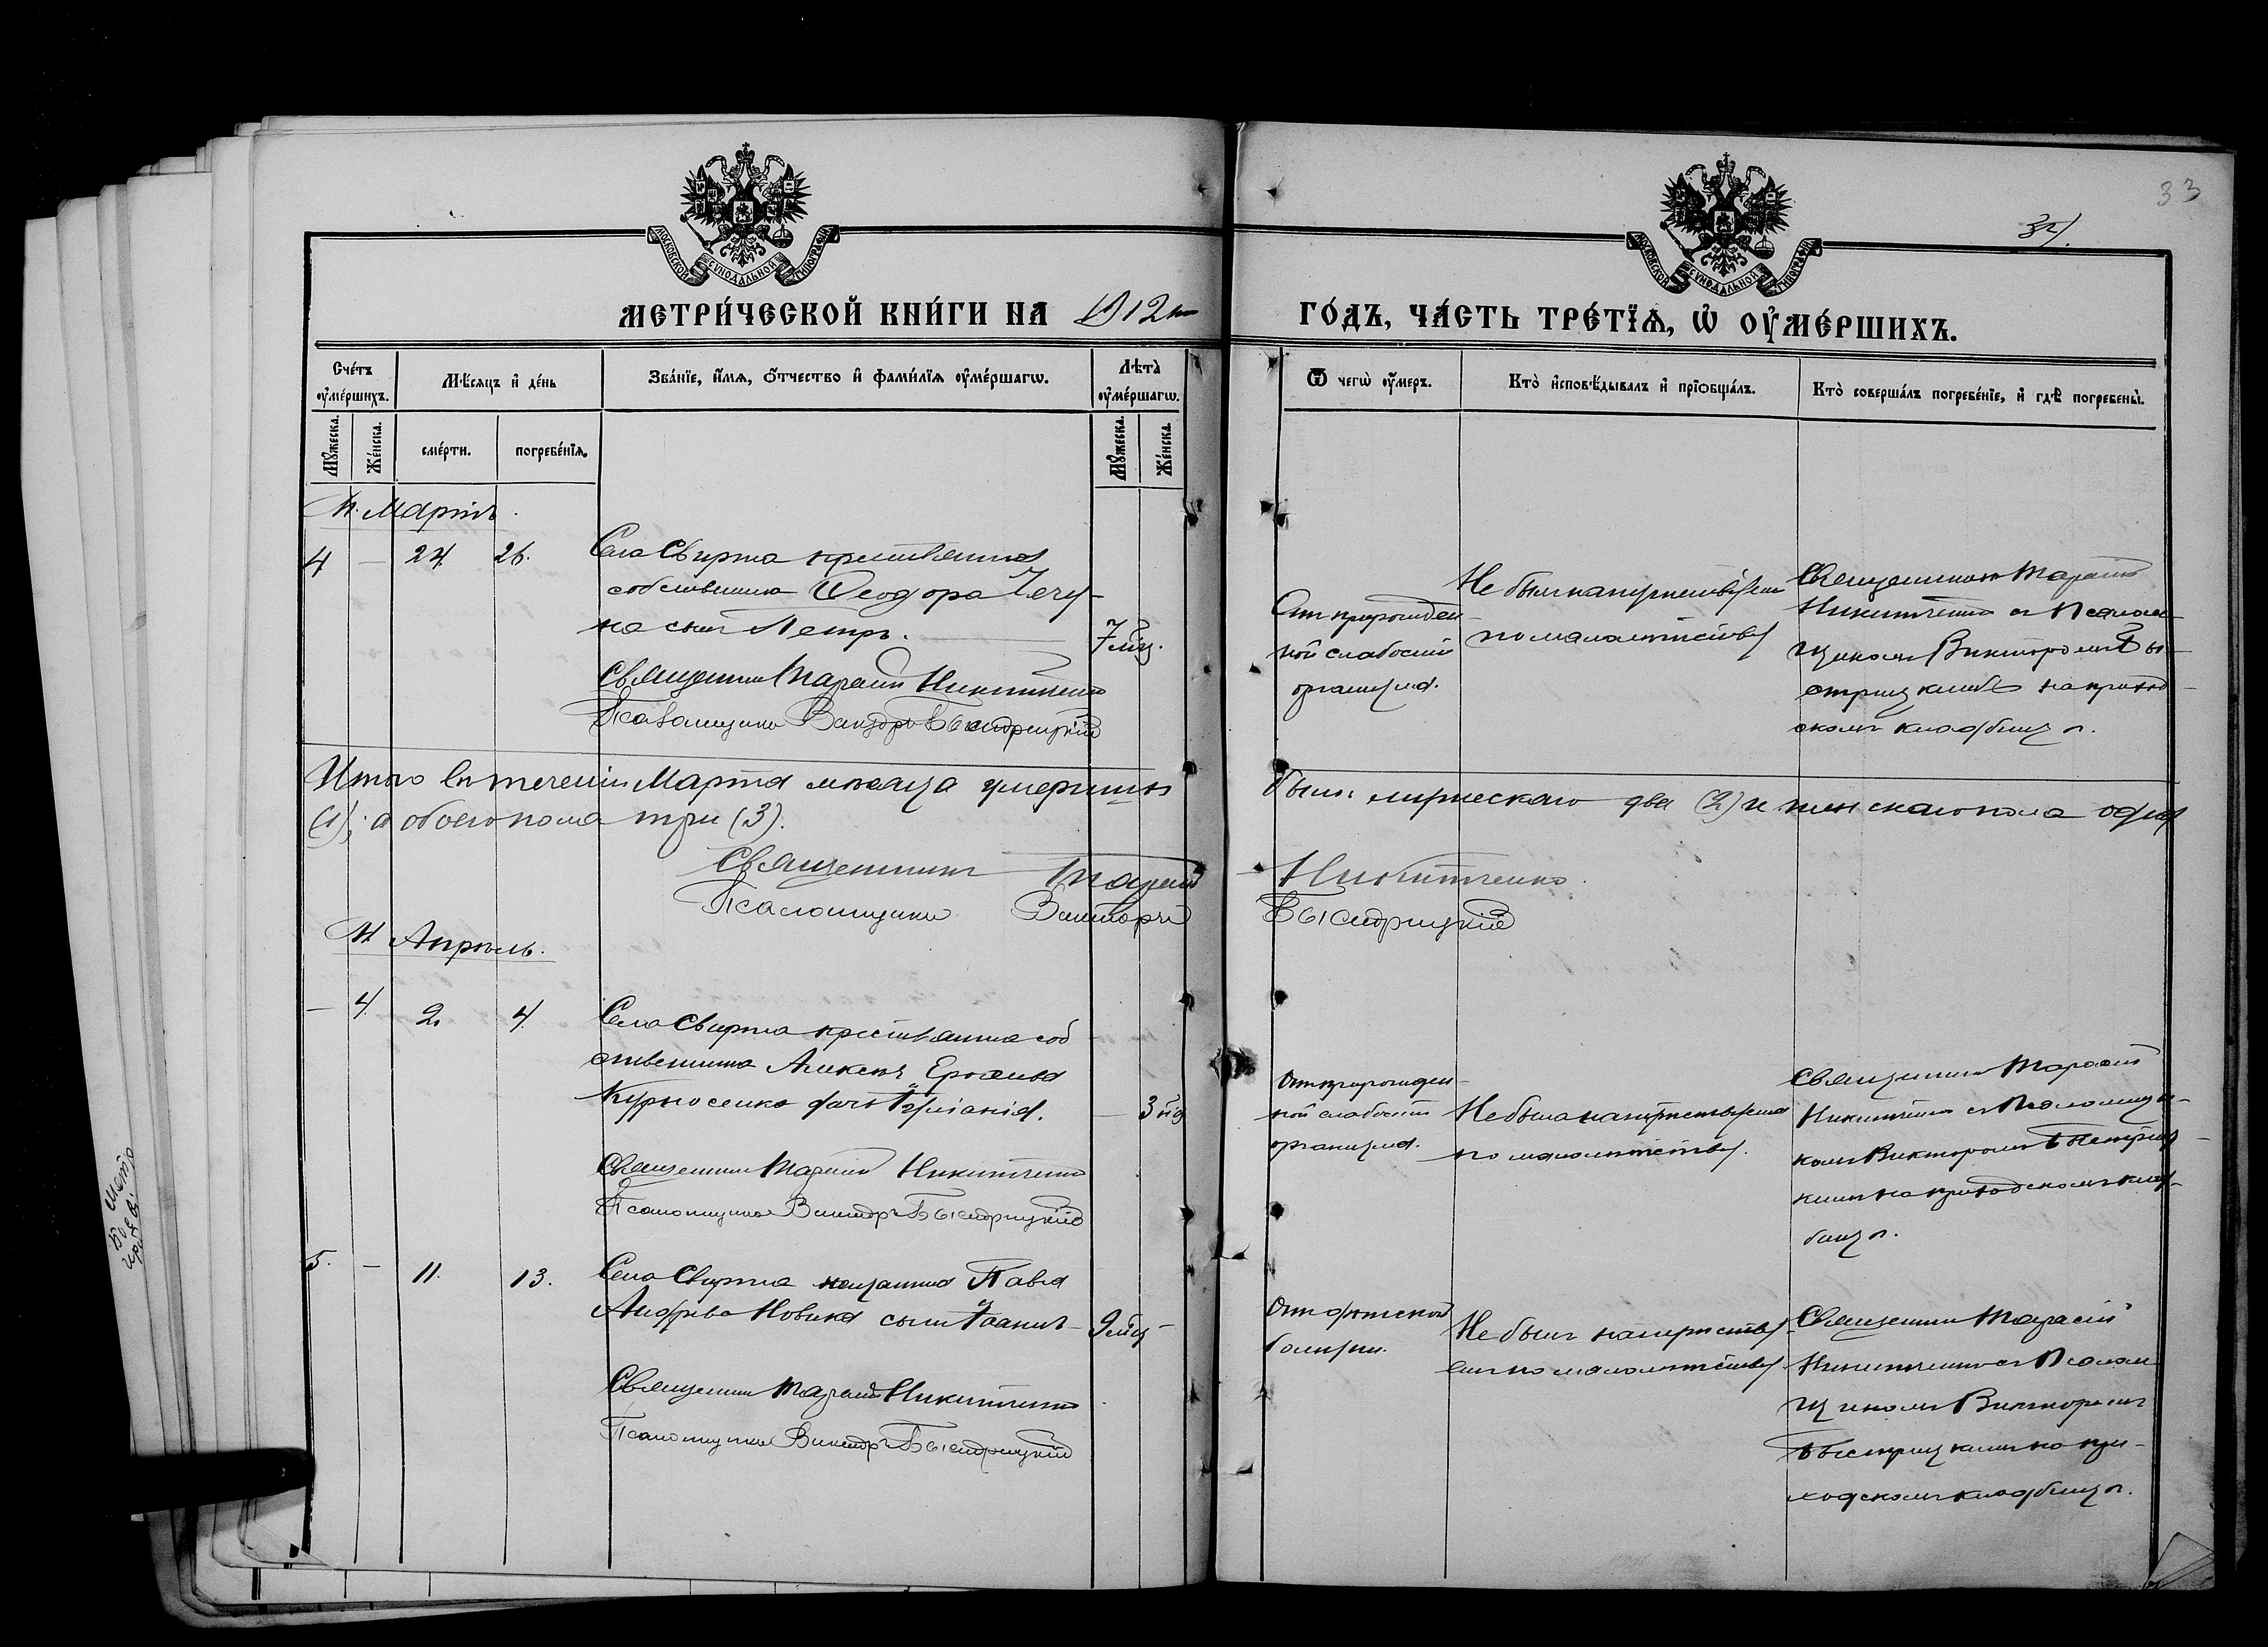 33
32).
МОСКОВСКОЙ СѴНОДАЛЬНОЙ ТИПОГРАФІИ
МОСКОВСКОЙ СѴНОДАЛЬНОЙ ТИПОГРАФІИ
МЕТРИ́ЧЕСКОЙ КНИ́ГИ НА 1912й
ГО́ДЪ, ЧА́СТЬ ТРЕ́ТЇѦ, Ѡ҆ ОУ҆МЕ́РШИХЪ.
Сче́тъ оу҆ме́ршихъ.
Мѣ́сяцъ и҆ де́нь
Зва́нїе, и҆́мѧ, ѻ҆́тчество и҆ фами́лїѧ оу҆ме́ршагѡ.
Лѣ́та̀ оу҆ме́ршагѡ.
Ѿ чегѡ̀ оу҆́меръ.
Кто̀ и҆сповѣ́дывалъ и҆ прїѻбща́лъ.
Кто̀ соверша́лъ погребе́нїе, и҆ гдѣ̀ погребены̀.
Мꙋ́жеска.
Же́нска.
сме́рти.
погребе́нїѧ.
Мꙋ́жеска.
Же́нска.
М. Мартъ.
4 — 24 26. Села Свирна крестьянина
собственника Ѳеодора
на сынъ Петръ. 7 мѣц.
Священникъ Тарасій Никитченко
Псаломщикъ Викторъ Быстрицкій
Отъ прирожден-
ной слабости
организма.
Не былъ напутствованъ
по малолѣтству
Священникъ Тарасій
Никитченко съ Псалом-
щикомъ Викторомъ Бы-
стрицкимъ на приход-
скомъ кладбищѣ.
Итого въ теченіи Марта мѣсяца умершихъ было: мужескаго два (2) и женскаго пола одна
(1), а обоего пола три (3).
Священникъ Тарасій Никитченко.
Псаломщикъ Викторъ Быстрицкій
М. Апрѣль.
— 4. 2. 4. Села Свирна крестьянина соб
ственника Алексѣя
Курносенко дочь — 3 нед
Священникъ Тарасій Никитченко
Псаломщикъ Викторъ Быстрицкій
Отъ прирожден-
ной слабости
организма.
Не была напутствована
по малолѣтству.
Священникъ Тарасій
Никитченко съ Псаломщи-
комъ Викторомъ Быстриц-
кимъ на приходскомъ клад-
бищѣ.
5. — 11. 13. Села Свирна мѣщанина Павла
Андреева Новика сынъ Іоаннъ 9 мѣц —
Священникъ Тарасій Никитченко
Псаломщикъ Викторъ Быстрицкій
Отъ дѣтской
болѣзни.
Не былъ напутство-
ванъ по малолѣтству
Священникъ Тарасій
Никитченко съ Псалом-
щикомъ Викторомъ
Быстрицкимъ на при-
ходскомъ кладбищѣ.